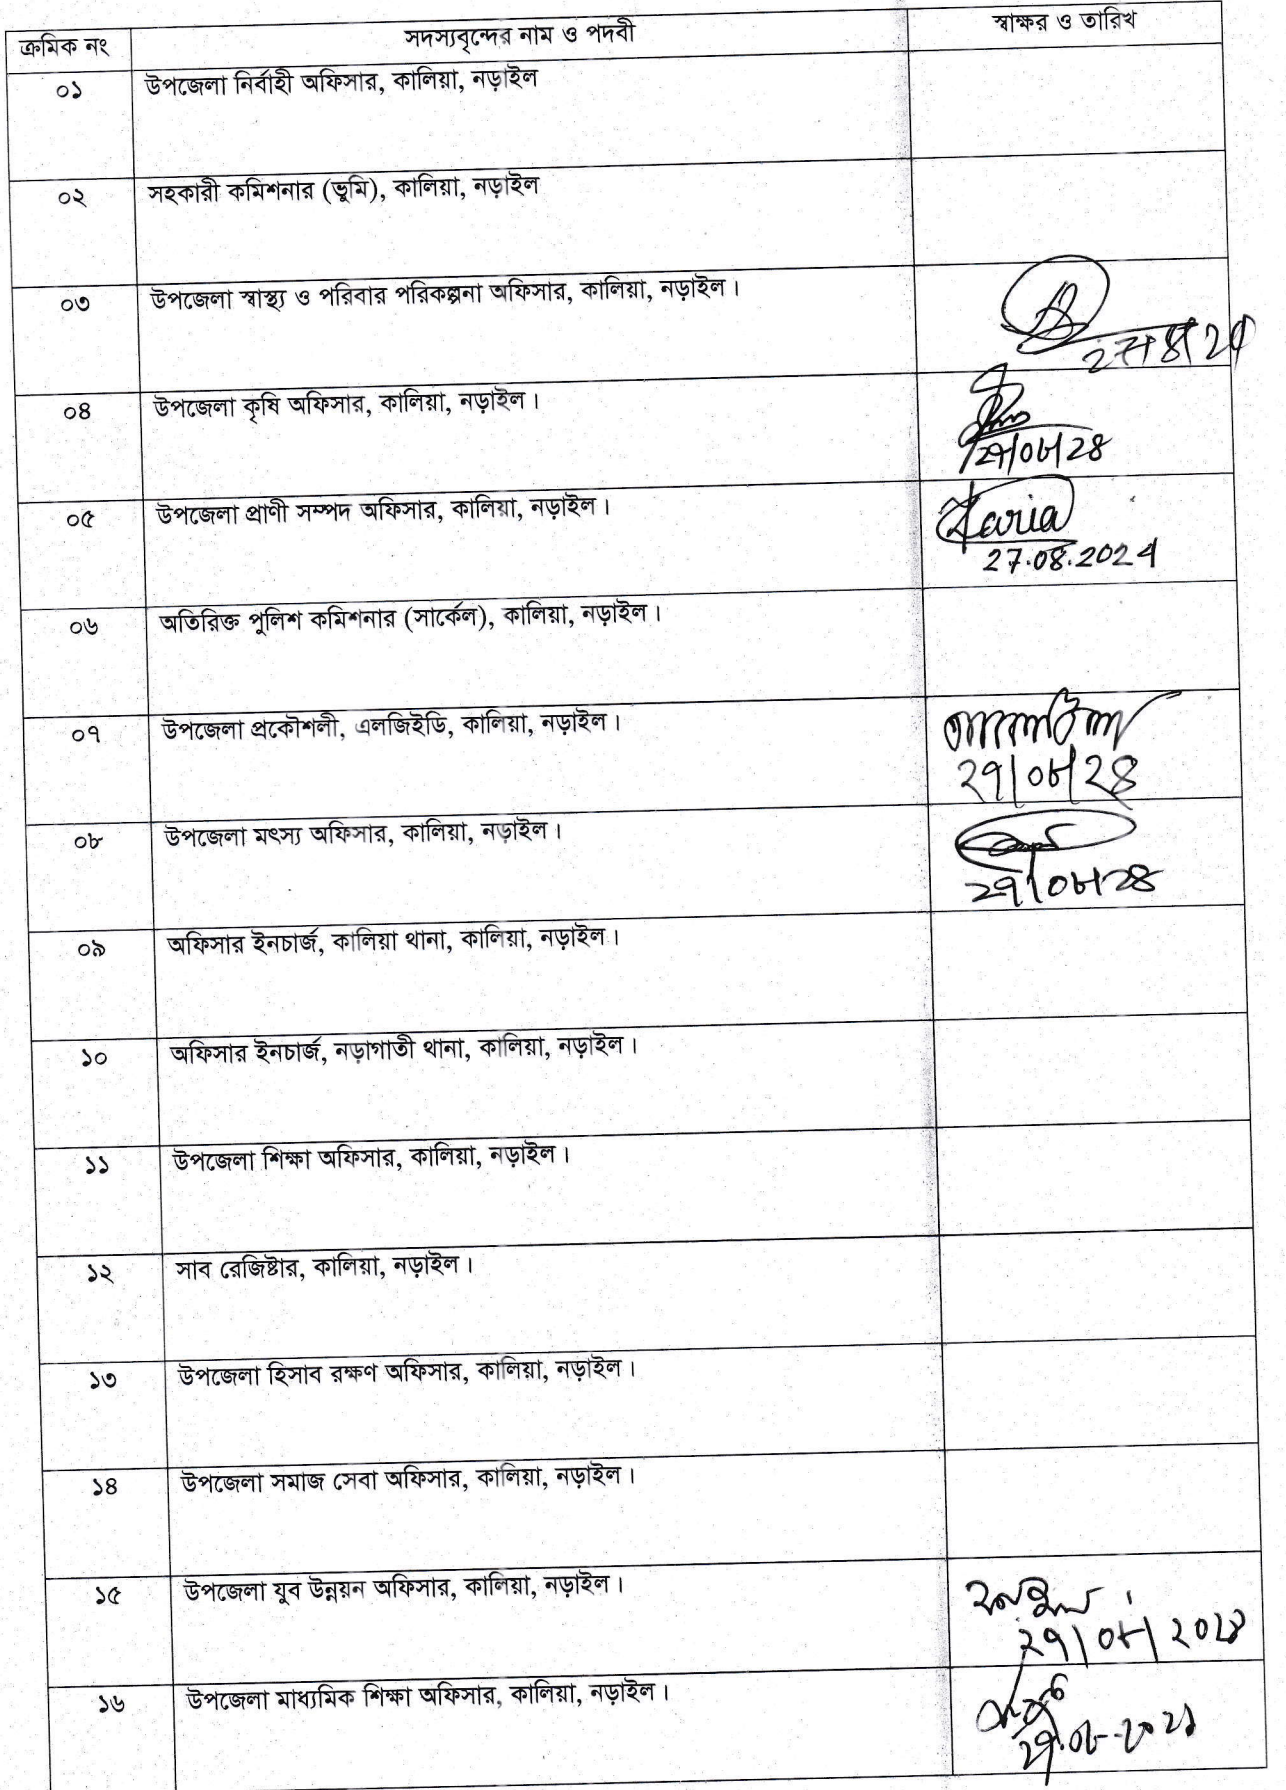 ক্রমিক নং সদস্যবৃন্দের নাম ও পদবী স্বাক্ষর ও তারিখ
০১ উপজেলা নির্বাহী অফিসার, কালিয়া, নড়াইল
০২ সহকারী কমিশনার (ভূমি), কালিয়া, নড়াইল
০৩ উপজেলা স্বাস্থ্য ও পরিবার পরিকল্পনা অফিসার, কালিয়া, নড়াইল।
০৪ উপজেলা কৃষি অফিসার, কালিয়া, নড়াইল।
২৭/০৮/২৪
০৫ উপজেলা প্রাণী সম্পদ অফিসার, কালিয়া, নড়াইল।
27.08.2024
০৬ অতিরিক্ত পুলিশ কমিশনার (সার্কেল), কালিয়া, নড়াইল।
০৭ উপজেলা প্রকৌশলী, এলজিইডি, কালিয়া, নড়াইল।
২৭/০৮/২৪
০৮ উপজেলা মৎস্য অফিসার, কালিয়া, নড়াইল।
২৭/০৮/২৪
০৯ অফিসার ইনচার্জ, কালিয়া থানা, কালিয়া, নড়াইল।
১০ অফিসার ইনচার্জ, নড়াগাতী থানা, কালিয়া, নড়াইল।
১১ উপজেলা শিক্ষা অফিসার, কালিয়া, নড়াইল।
১২ সাব রেজিষ্টার, কালিয়া, নড়াইল।
১৩ উপজেলা হিসাব রক্ষণ অফিসার, কালিয়া, নড়াইল।
১৪ উপজেলা সমাজ সেবা অফিসার, কালিয়া, নড়াইল।
১৫ উপজেলা যুব উন্নয়ন অফিসার, কালিয়া, নড়াইল।
২৭/০৮/২০২৪
১৬ উপজেলা মাধ্যমিক শিক্ষা অফিসার, কালিয়া, নড়াইল।